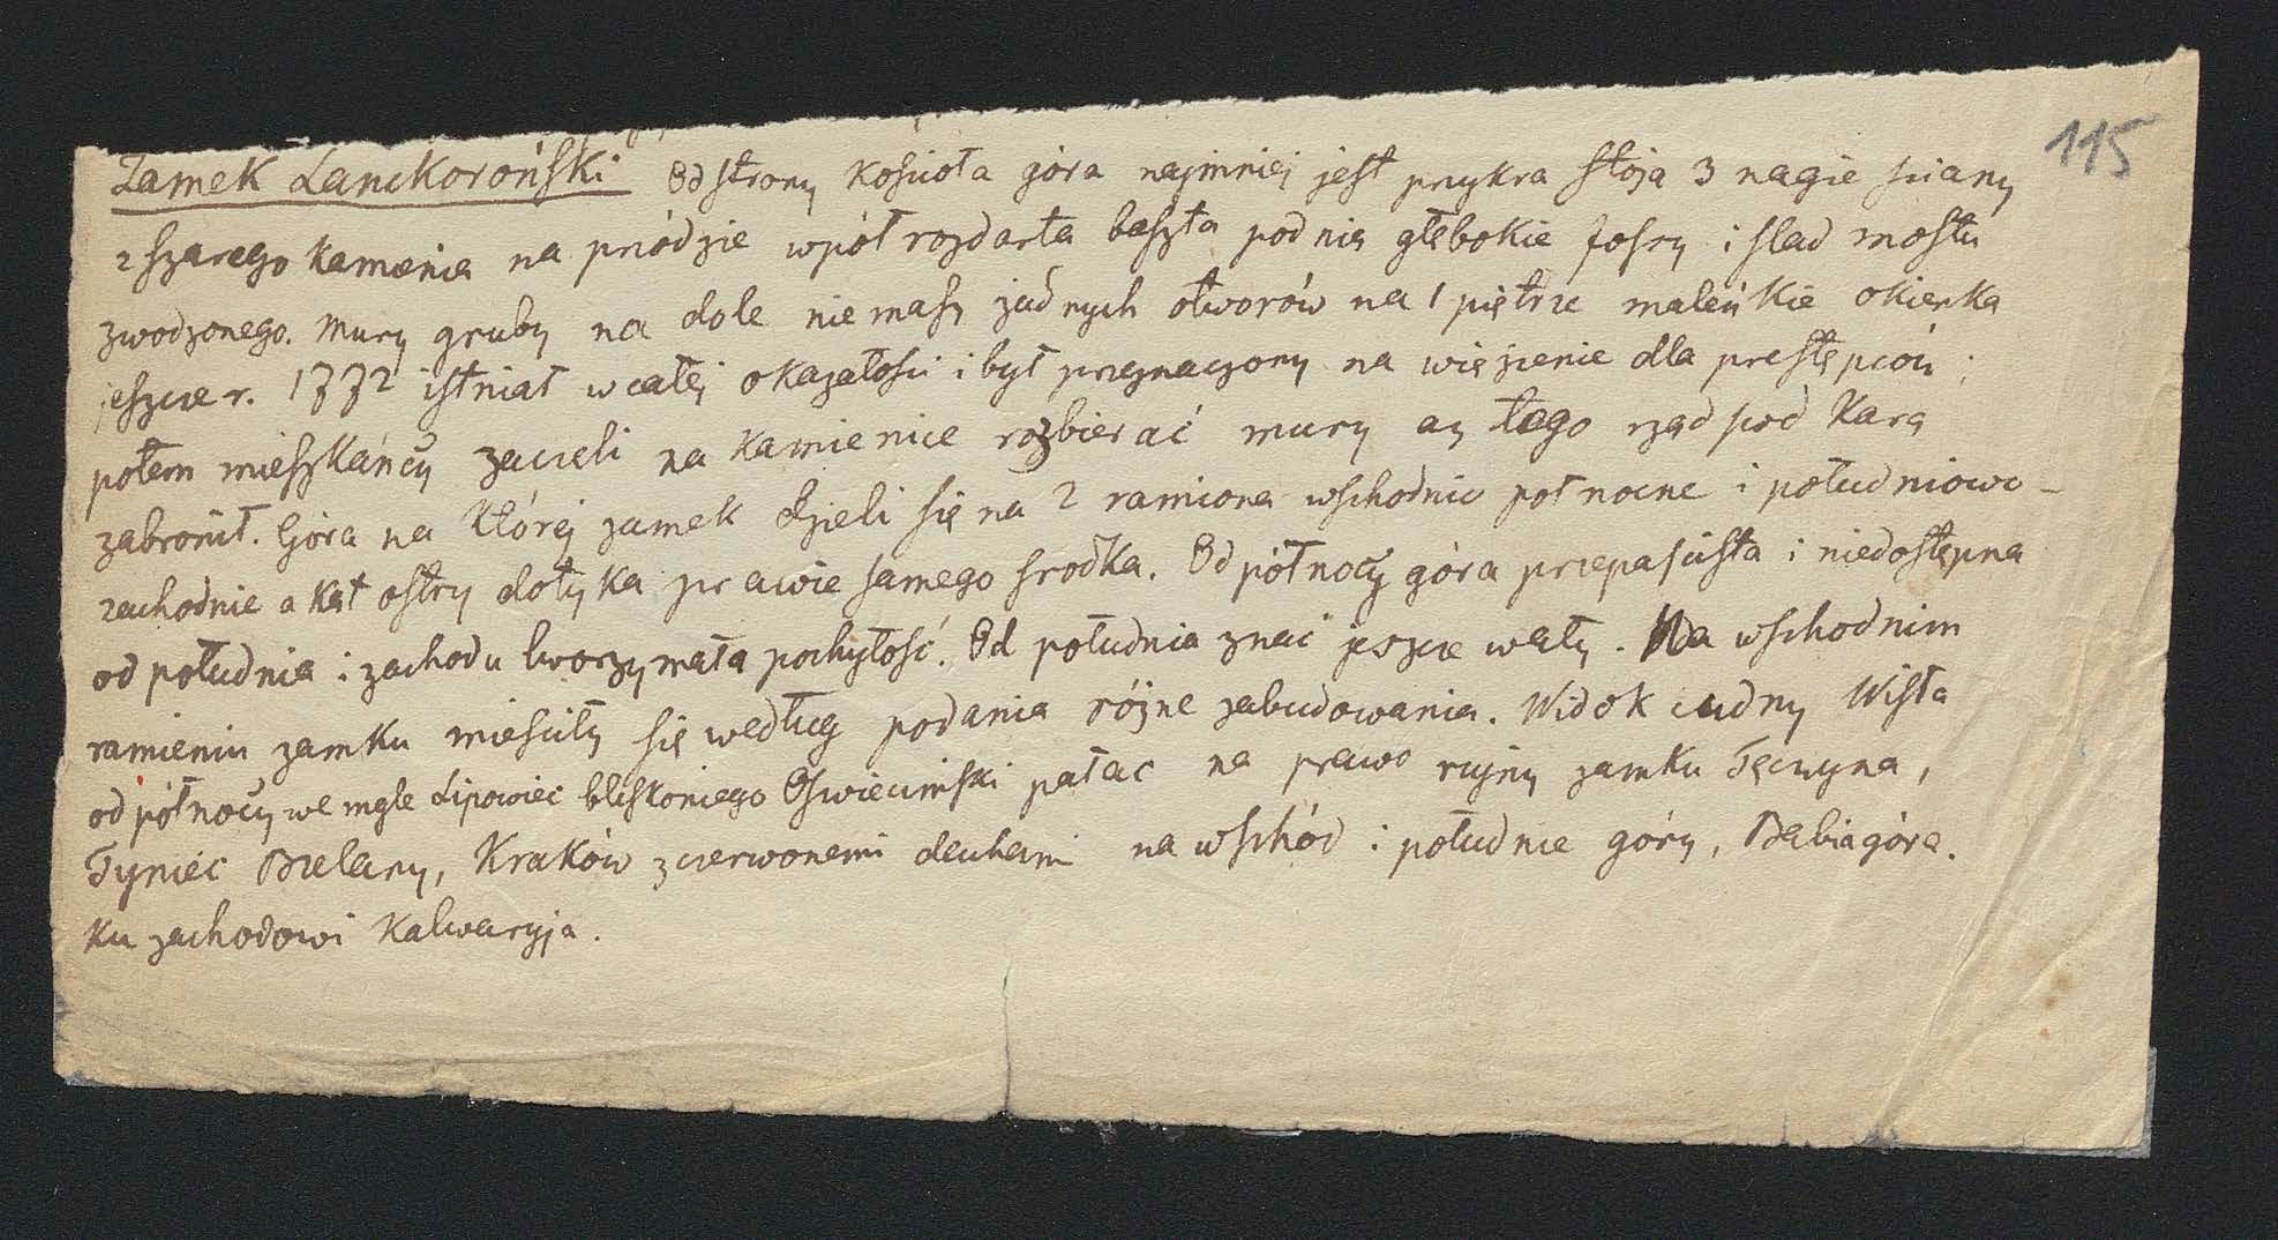 115
Zamek Lanckoroński Od strony kościoła góra najmniej jest prykra stoja 3 nagie sciany
z szarego kamienia na przódzie wpół rozdarta baszta pod nią głębokie fosry i slad mostu
zwodzonego. Mury gruby na dole niemasz żadnych otworów na 1 piętrze maleńkie okienka
jeszcze r. 1772 istniał w całej okazałości i był przeznaczony na więzienie dla prestępców;
potem mieszkańcy zaczeli na kamienice rozbierać mury aż tego rząd pod karą
zabronił. Góra na której zamek dzieli się na 2 ramiona wschodnio połnocne i południowo-
zachodnie a kąt ostry dotyka prawie samego srodka. Od północy góra przepascista i niedostępna
od południa i zachodu tworzy mała pochyłość. Od południa znać jeszcze wały. Na wschodnim
ramieniu zamku miesciły się według podania różne zabudowania. Widok cudny Wisła
od północy we mgle Lipowiec bliskoniego Oswiecimski pałac na prawo rujny zamku Tęczyna,
Tyniec Bielany, Kraków z czerwonemi dachami na wschód i południe góry, Babia góra.
Ku zachodowi Kalwaryja.